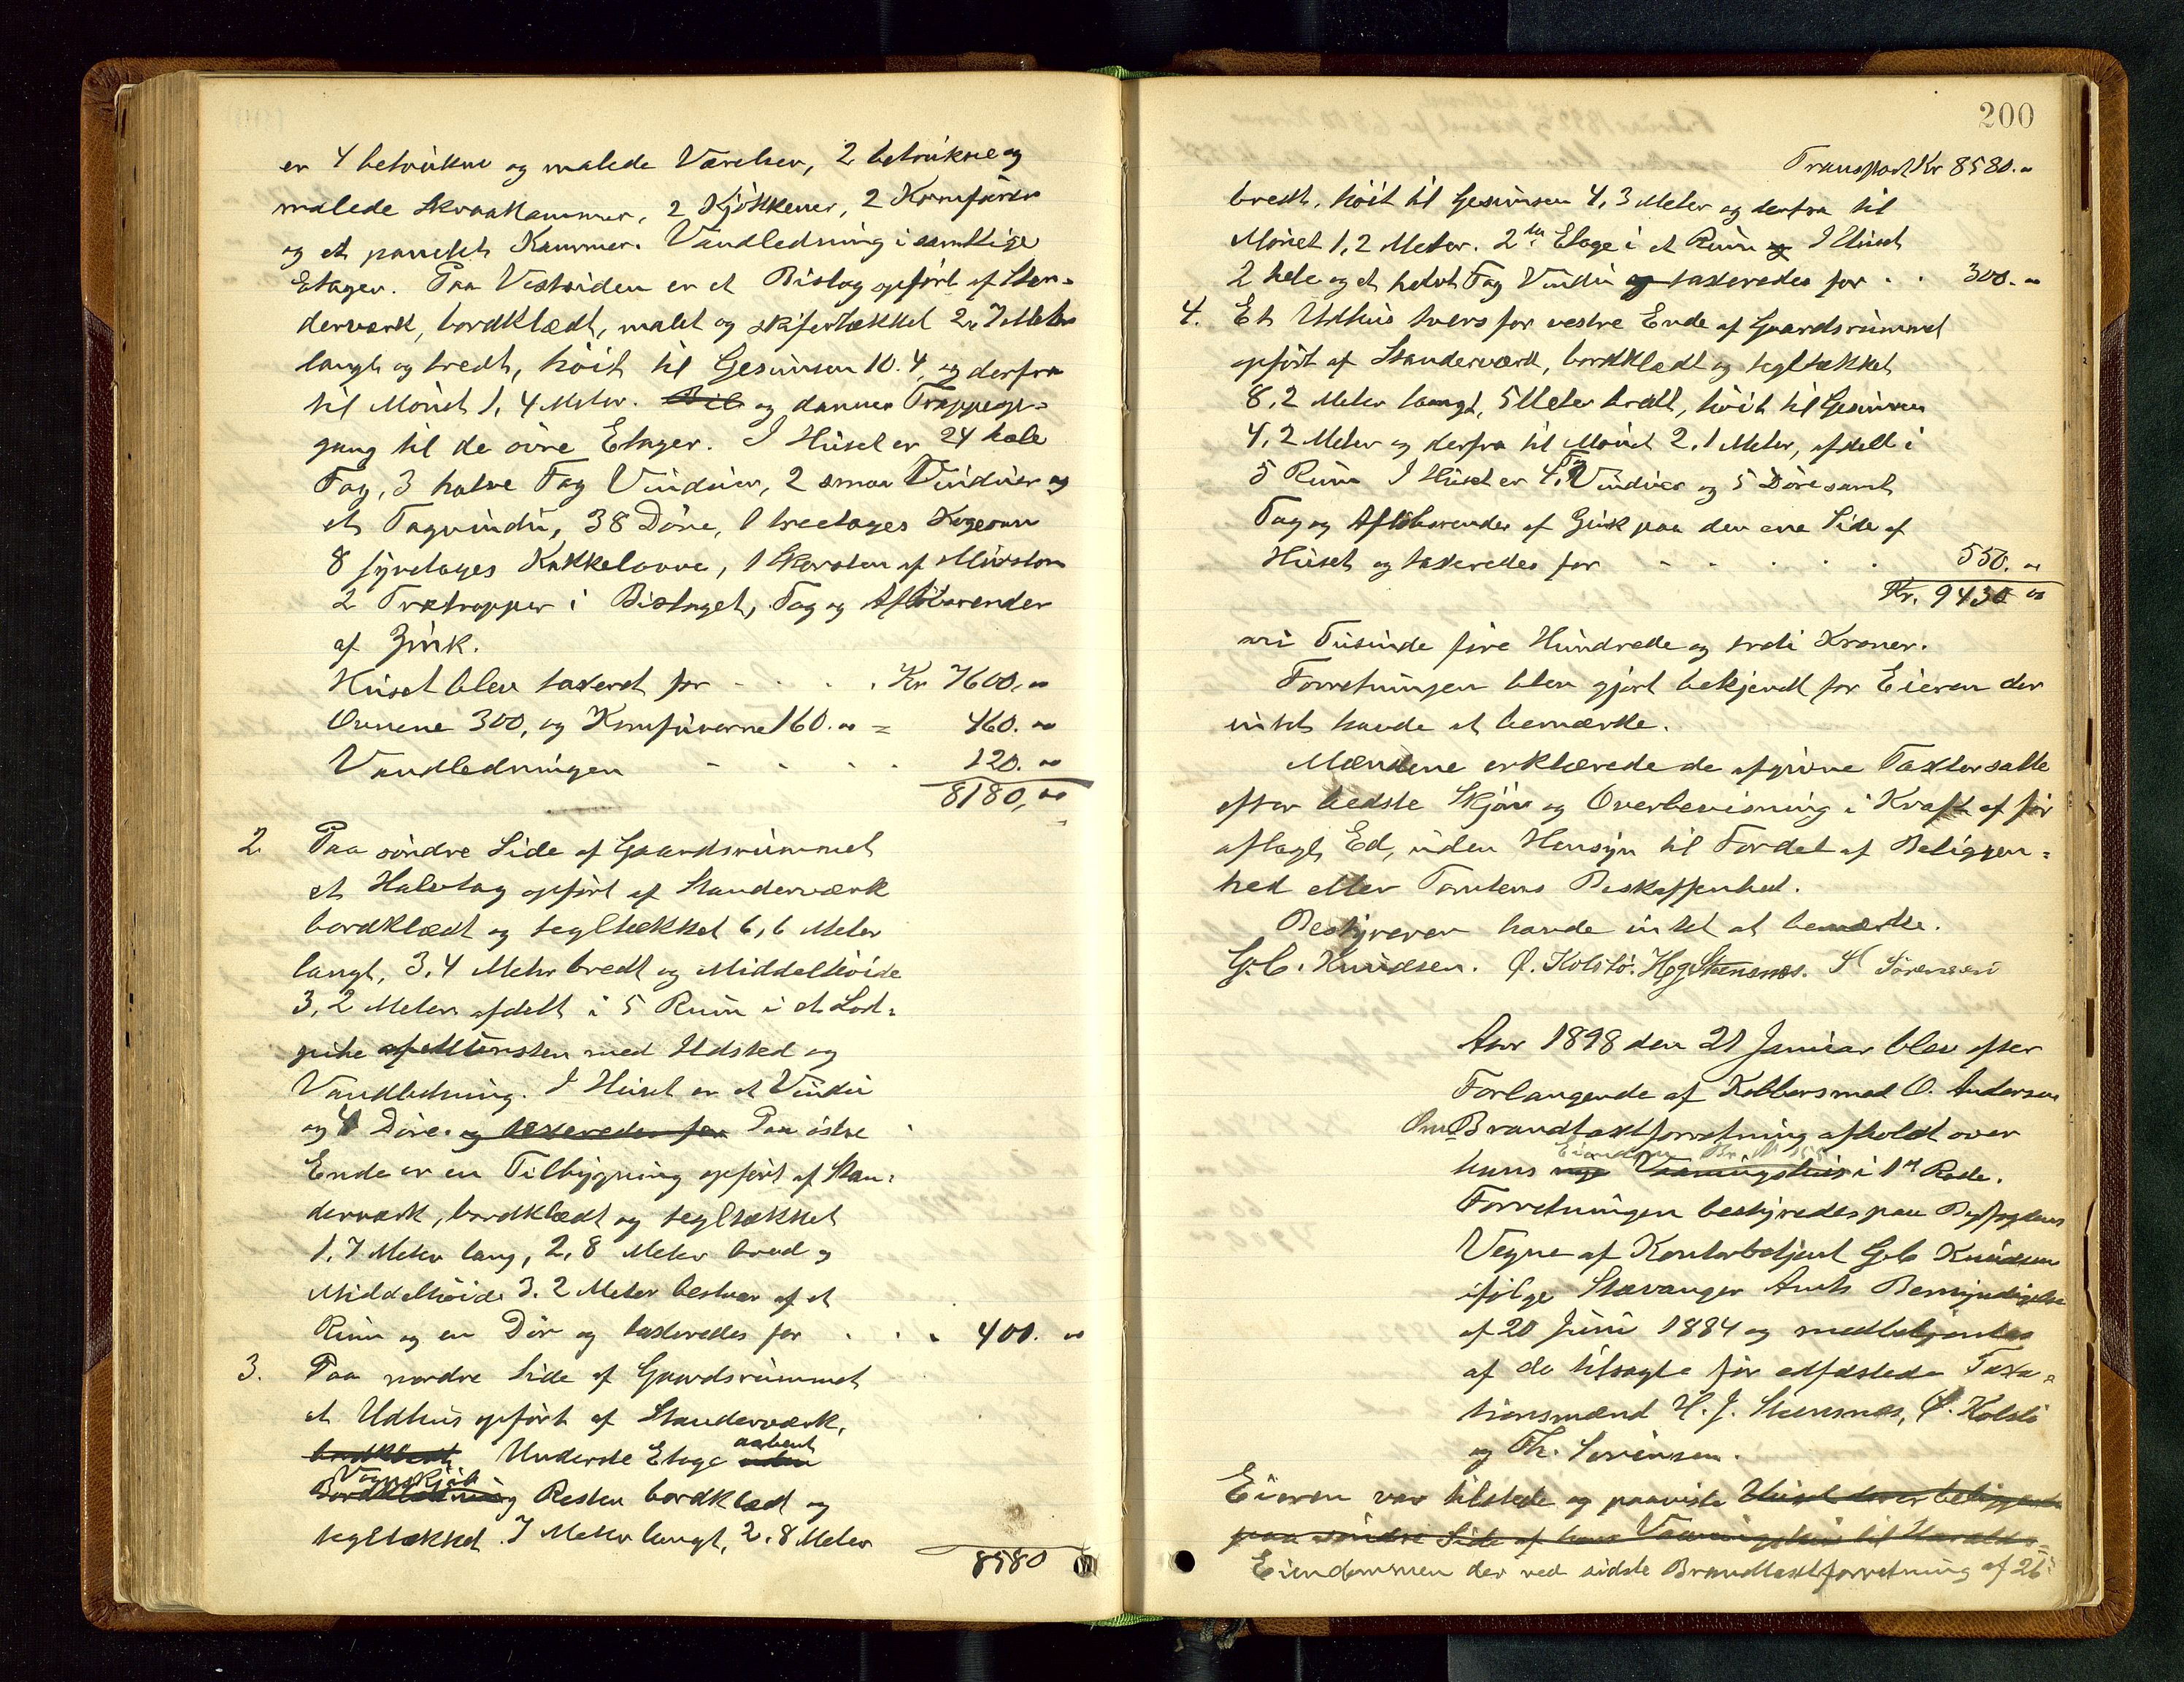 er 4 betrukne og malede Værelser, 2 betrukne og
malede Skraakammer, 2 Kjøkkener, 2 Komfurer
og et panelet Kammer. Vandledning i samtlige
Etager. Paa Vestsiden er et Bislag opført af Stan-
derværk, bordklædt, malet og skifertækket 2,7 Meter
langt og bredt, höit til Gesimsen 10.4, og derfra
til Mönet 1,4 Meter. og danner Trappeop-
gang til de övre Etager. I Huset er 24 hele
Fag, 3 halve Fag Vinduer, 2 smaa Vinduer og
et Tagvindu, 38 Döre, 1 treetages Kogeovn
8 fyretages Kakkelovne, 1 Skorsten af Mursten
2 Trætrapper i Bislaget, Tag og Aflöbsrender
af Zink.
Huset blev taxeret for - . . . Kr 7600,00
Ovnene 300, og Komfurerne 160.00 = 460.00
Vandledningen - - . . . 120.00
8180,00
2. Paa söndre Side af Gaardsrummet
et Halvtag opført af Standerværk
bordklædt og tegltækket 6,6 Meter
langt, 3,4 Meter bredt og Middelhöide
3,2 Meter afdelt i 5 Rum i et Lod-
pibe af Mursten med Ildsted og
Vandledning. I Huset er et Vindu
og 4 Döre. og taxeredes for Paa östre
Ende er en Tilbygning opført af Stan-
derværk, bordklædt og tegltækket
1,7 Meter lang, 2,8 Meter bred og
Middelhöide 3.2 Meter bestaar af et
Rum og en Dör og taxeredes for . . . 400.00
3. Paa nordre Side af Gaardsrummet
et Udhus opført af Standerværk,
bordklædt, Underste Etage uden aabent
Bordklædning Vognskjul Resten bordklæd og
tegltækket. 7 Meter langt, 2.8 Meter
8580
200
Transport Kr 8580.00
bredt, höit til Gesimsen 4,3 Meter og derfra til
Mönet 1,2 Meter. 2den Etage i et Rum og I Huset
2 hele og et halvt Fag Vindu og taxeredes for . . 300.00
4. Et Udhus tvers for vestre Ende af Gaardsrummet
opført af Standerværk, bordklædt og tegltækket
8,2 Meter langt, 5 Meter bredt, höit til Gesimsen
4,2 Meter og derfra til Mönet 2,1 Meter, afdelt i
5 Rum I Huset er 4 Fag Vinduer og 5 Döre samt
Tag og Aflöbsrender af Zink paa den ene Side af
Huset og taxeredes for - - . . . 550.00
Kr. 9430.00
ni Tusinde fire Hundrede og tredi Kroner.
Forretningen blev gjort bekjendt for Eieren der
intet havde at bemærke.
Mændene erklærede de afgivne Taxter satte
efter bedste Skjön og Overbevisning i Kraft af för
aflagt Ed, uden Hensyn til Fordel af Beliggen-
hed eller Tomtens Beskaffenhed.
Bestyreren havde intet at bemærke.
G.C. Knudsen. O. Kolstö. H J Steensnæs. Sörensen
Aar 1898 den 21 Januar blev efter
Forlangende af Kobbersmed O. Andersen
Om Brandtaxtforretning afholdt over
hans nye Vaaningshus Eiendom i 1te Rode.
Forretningen bestyredes paa Byfogdens
Vegne af Kontorbetjent G.C. Knudsen
ifölge Stavanger Amts Bemyndigelse
af 20 Juni 1884 og medbetjentes
af de tilsagte för edfæstede Taxa-
tionsmænd H. J. Steensnæs, O. Kolstö
og Th. Sörensen.
Eieren var tilstede og paaviste Huset der er beliggende
paa söndre Side af hans Vaaningshus til Haralds-
Eiendommen der ved sidste Brandtaxtforretning af 26